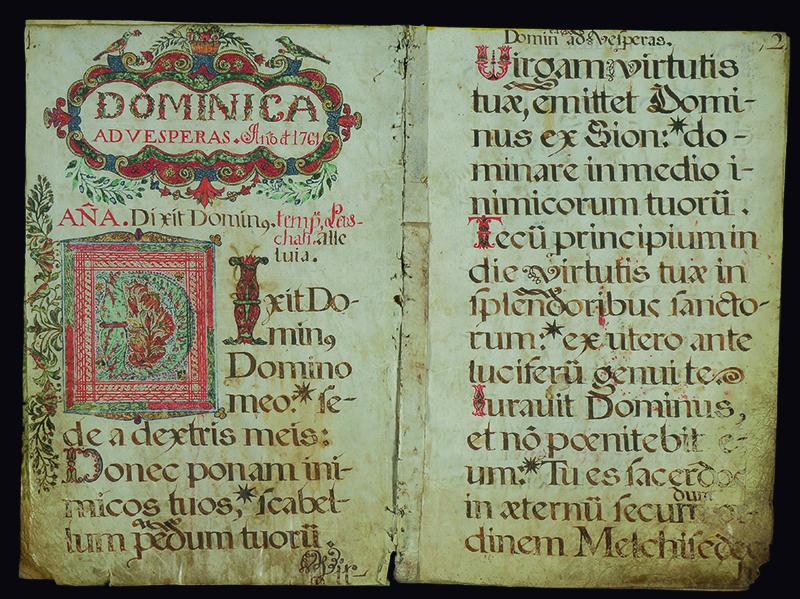 DOMINICA
AD VESPERAS. Año d 1761
AÑA. Dixit Domin9. temp. Pas-
chali. alle
luia.
DIxit Do-
min9
Domino
meo:* se-
de a dextris meis:
Donec ponam ini-
micos tuos,* scabel-
lum pedum tuorũ.
Vir-
2
Domin ad Vesperas.
Virgam virtutis
tuæ, emittet Domi-
nus ex Sion:* do-
minare in medio i-
nimicorum tuorũ.
Tecũ principium in
die virtutis tuæ in
splendoribus sancto-
rum:* ex utero ante
luciferũ genui te.
Iurauit Dominus,
et nõ pœnitebit e-
um:* Tu es sacerdos
in æternũ secundum
dinem Melchisedec